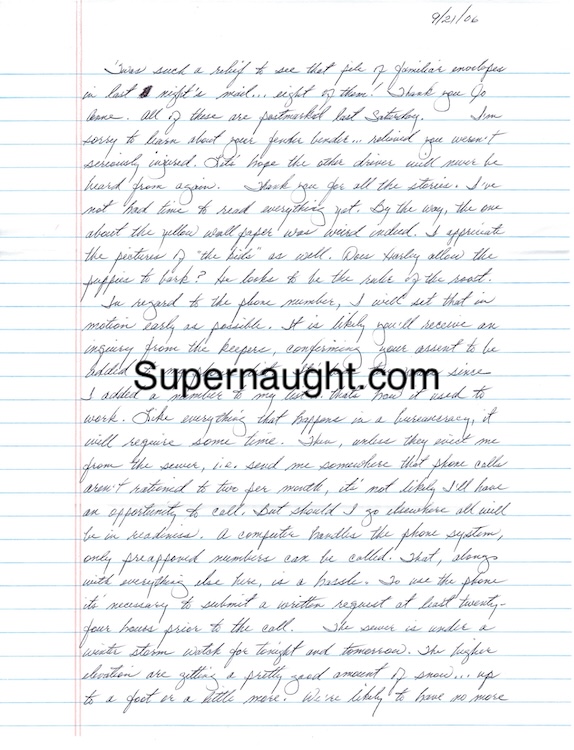 9/21/06
'Twas such a relief to see that pile of familiar envelopes
in last night's mail... eight of them! Thank you Jo
Anne. All of these are postmarked last Saturday. I'm
sorry to learn about your fender bender... relieved you weren't
seriously injured. Let's hope the other driver will never be
heard from again. Thank you for all the stories. I've
not had time to read everything yet. By the way, the one
about the yellow wall paper was weird indeed. I appreciate
the pictures of "the kids" as well. Does Harley allow the
puppies to bark? He looks to be the ruler of the roost.
In regard to the phone number, I will set that in
motion early as possible. It is likely you'll receive an
inquiry from the keepers, confirming your assent to be
added since
Supernaught.com
I added a number to my list that's how it used to
work. Like everything that happens in a bureaucracy, it
will require some time. Then, unless they evict me
from the sewer, i.e. send me somewhere that phone calls
aren't rationed to two per month, it's not likely I'll have
an opportunity to call. But should I go elsewhere all will
be in readiness. A computer handles the phone system,
only preapproved numbers can be called. That, along
with everything else here, is a hassle. To use the phone
it's necessary to submit a written request at least twenty-
four hours prior to the call. The sewer is under a
winter storm watch for tonight and tomorrow. The higher
elevation are getting a pretty good amount of snow... up
to a foot or a little more. We're likely to have no more